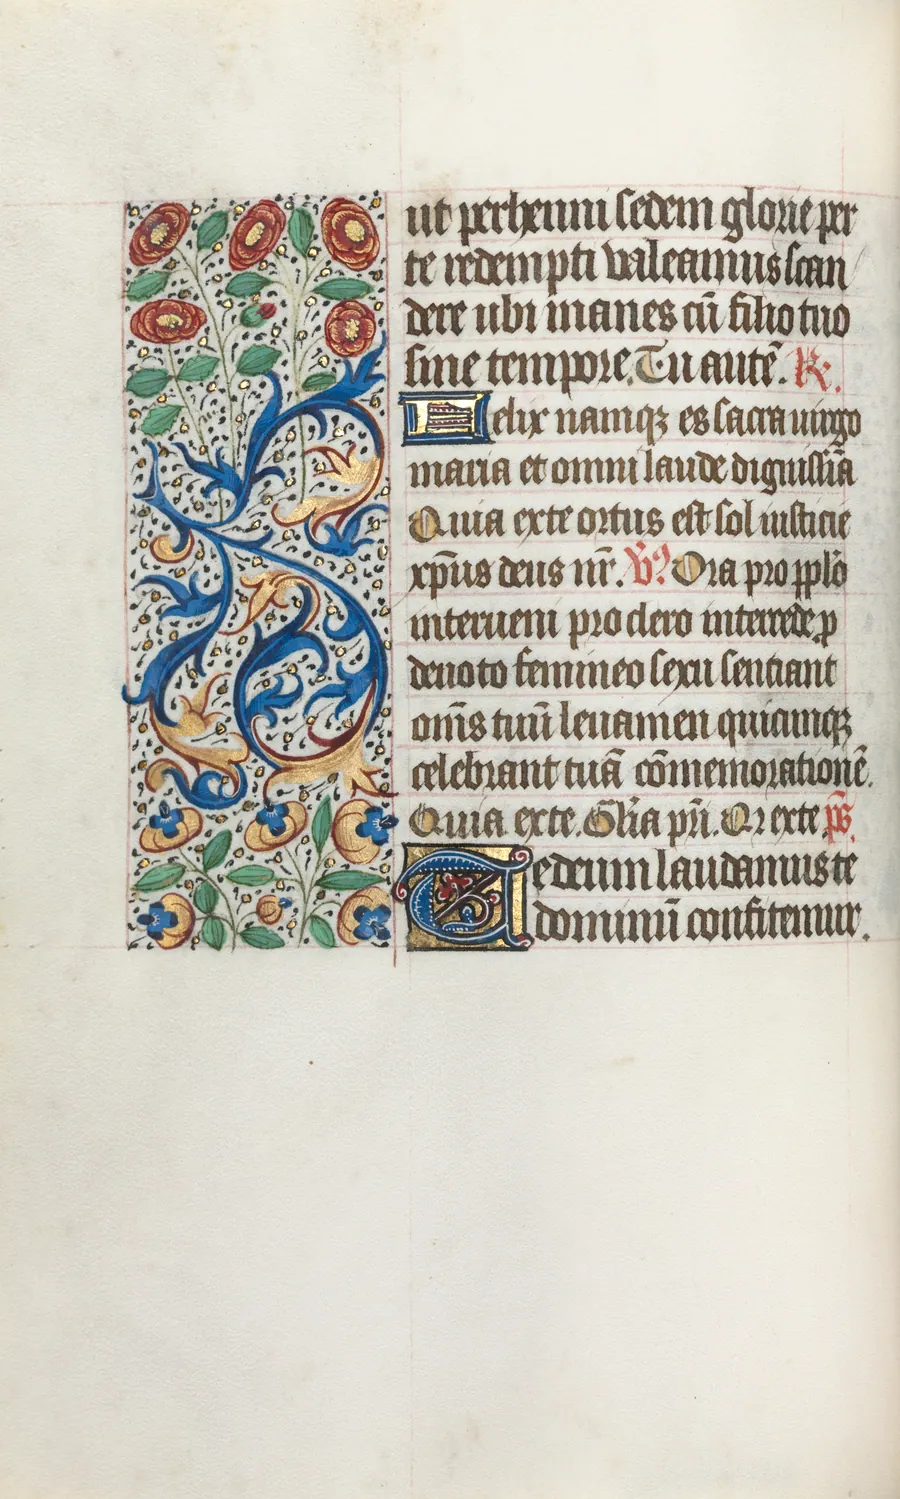 ut perhenni sedem glorie per
te redempti valeamus scan
dere ubi manes cū filio tuo
sine tempore. Tu autē. R.
Felix namqz es sacra uirgo
maria et omni laude dignissīa
Quia exte ortus est sol iusticie
xp̄us deus nr̄. V. Ora pro pplo
interueni pro clero intercede p
deuoto femineo sexu sentiant
om̄s tuū leuamen quicumqz
celebrant tuā cōmemorationē.
Quia exte. Glīa pr̄i. Qr exte ps̄.
Te deum laudamus te
dominū confitemur.